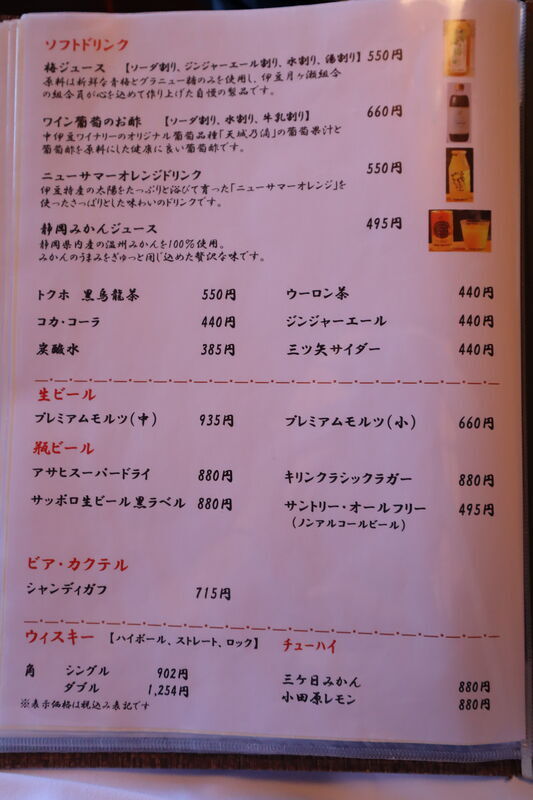 ソフトドリンク
梅ジュース 【ソーダ割り、ジンジャーエール割り、水割り、湯割り】 550円
原料は新鮮な青梅とグラニュー糖のみを使用し、伊豆月ヶ瀬組合
の組合員が心を込めて作り上げた自慢の製品です。
ワイン葡萄のお酢 【ソーダ割り、水割り、牛乳割り】 660円
中伊豆ワイナリーのオリジナル葡萄品種「天城乃滴」の葡萄果汁と
葡萄酢を原料にした健康に良い葡萄酢です。
ニューサマーオレンジドリンク 550円
伊豆特産の太陽をたっぷりと浴びて育った「ニューサマーオレンジ」を
使ったさっぱりとした味わいのドリンクです。
静岡みかんジュース 495円
静岡県内産の温州みかんを100%使用。
みかんのうまみをぎゅっと閉じ込めた贅沢な味です。
トクホ 黒烏龍茶 550円 ウーロン茶 440円
コカ・コーラ 440円 ジンジャーエール 440円
炭酸水 385円 三ツ矢サイダー 440円
生ビール
プレミアムモルツ(中) 935円 プレミアムモルツ(小) 660円
瓶ビール
アサヒスーパードライ 880円 キリンクラシックラガー 880円
サッポロ生ビール黒ラベル 880円 サントリー・オールフリー 495円
(ノンアルコールビール)
ビア・カクテル
シャンディガフ 715円
ウィスキー 【ハイボール、ストレート、ロック】 チューハイ
角 シングル 902円 三ケ日みかん 880円
ダブル 1,254円 小田原レモン 880円
※表示価格は税込み表記です